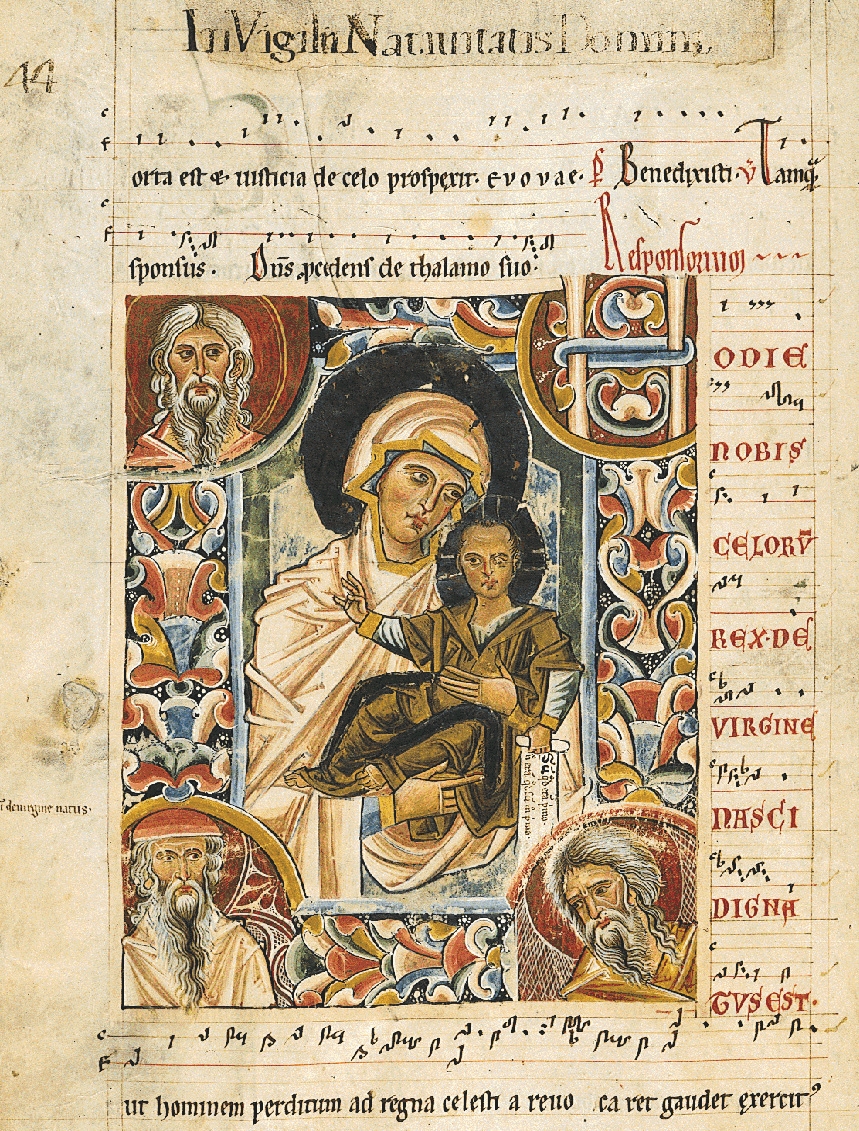 In Vigilia Natiuitatis Domini
44
orta est & iusticia de celo prospexit. e v o v a e. Benedixisti. Tamq̄
sponsus. Dn̄s ꝓcedens de thalamo suo.
Responsorium
ODIE
NOBIS
CELORV̄
REX·DE
VIRGINE
NASCI
DIGNA
TVS EST·
de uirgine natus.
ut hominem perditum ad regna celesti a reuo ca ret gaudet exercitꝰ